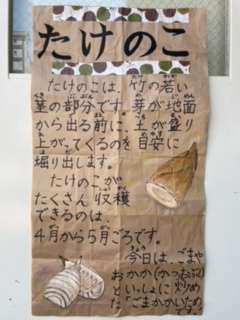 たけのこ
たけのこは、竹の若い
茎の部分です。芽が地面
から出る前に、土が盛り
上がってくるのを目安に
掘り出します。
たけのこが
たくさん収穫
できるのは、
4月から5月ごろです。
今日は、ごまや
おかか(かつおぶし)
といっしょに炒め
た「ごまかかいため」
です。